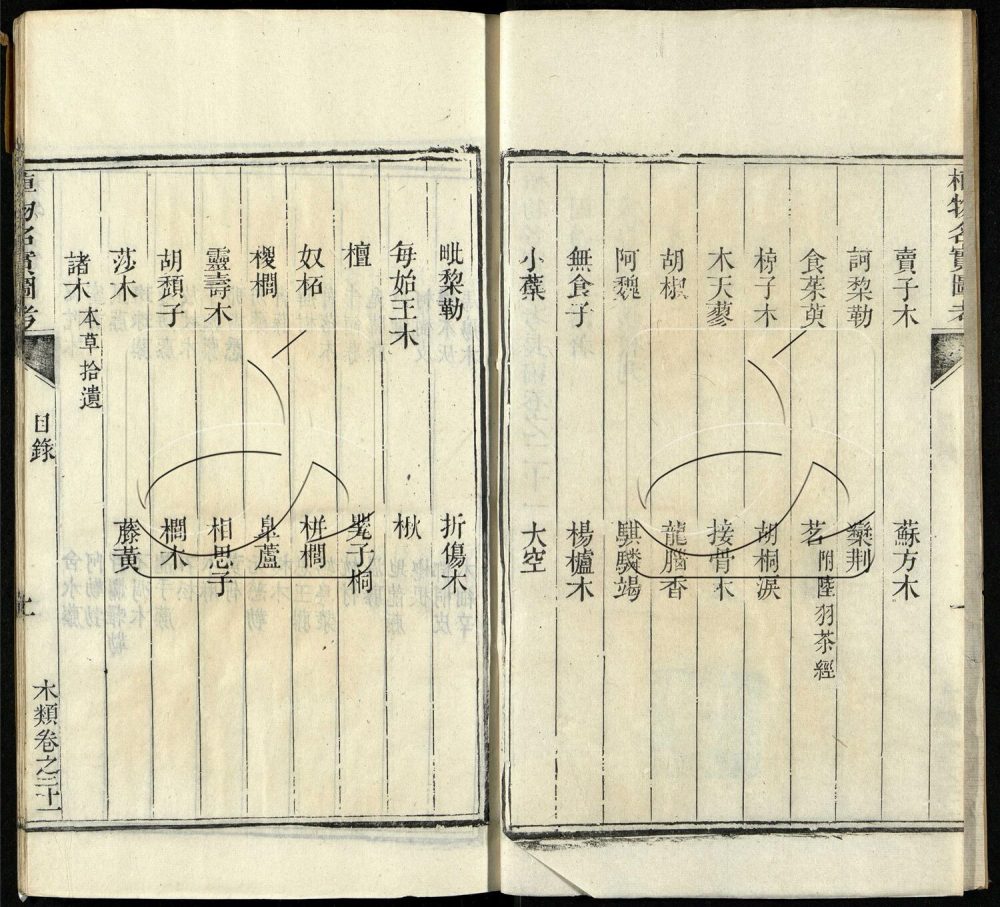 植物名實圖考
賣子木 蘇方木
訶黎勒 欒荆
食茱萸 茗 附陸羽茶經
椋子木 胡桐淚
木天蓼 接骨木
胡椒 龍腦香
阿魏 騏驎竭
無食子 楊櫨木
小蘗 大空
毗黎勒 折傷木
每始王木 楸
檀 罌子桐
奴柘 栟櫚
椶櫚 臯蘆
靈壽木 相思子
胡頹子 櫚木
莎木 藤黃
諸木 本草拾遺
植物名實圖考 目錄 木類卷之二十一